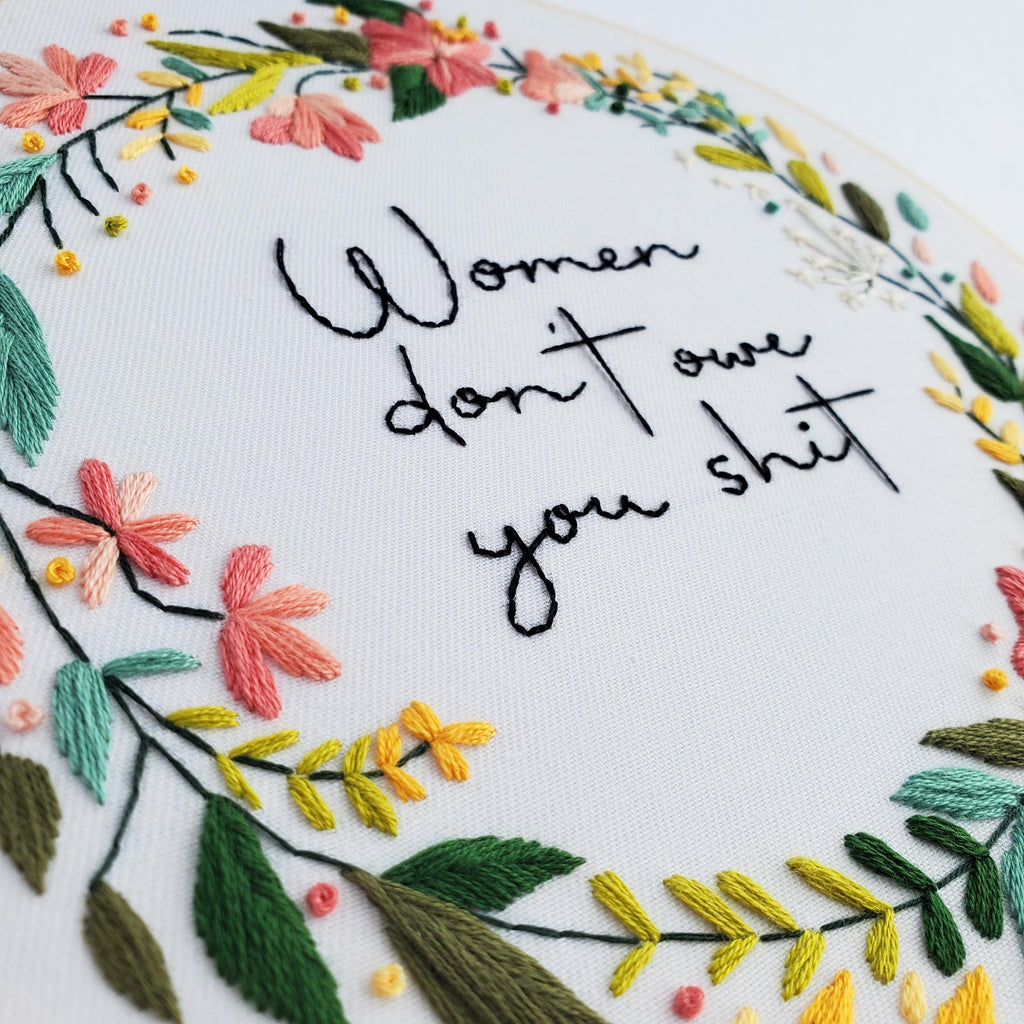 Women
don't owe
you shit